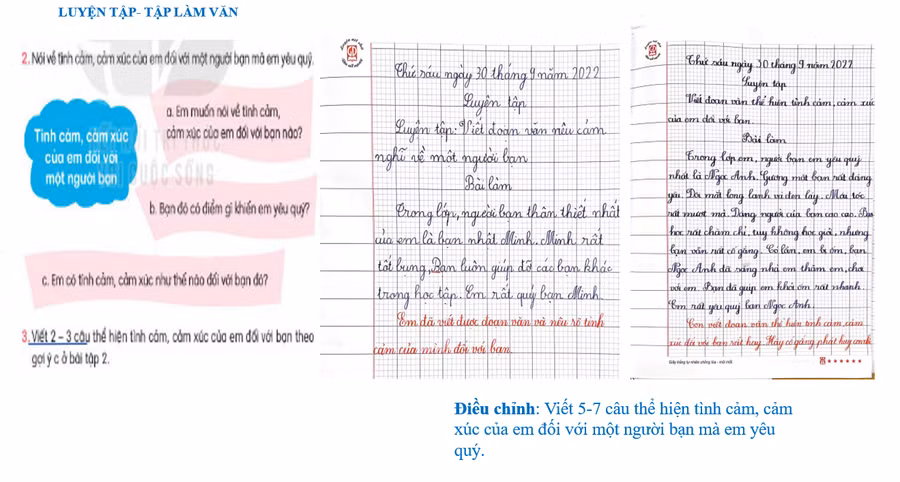 LUYỆN TẬP- TẬP LÀM VĂN
2. Nói về tình cảm, cảm xúc của em đối với một người bạn mà em yêu quý.
Tình cảm, cảm xúc
của em đối với
một người bạn
a. Em muốn nói về tình cảm,
cảm xúc của em đối với bạn nào?
b. Bạn đó có điểm gì khiến em yêu quý?
c. Em có tình cảm, cảm xúc như thế nào đối với bạn đó?
3. Viết 2 – 3 câu thể hiện tình cảm, cảm xúc của em đối với bạn theo
gợi ý c ở bài tập 2.
Thứ sáu ngày 30 tháng 9 năm 2022
Luyện tập
Luyện tập: Viết đoạn văn nêu cảm
nghĩ về một người bạn
Bài làm
Trong lớp, người bạn thân thiết nhất
của em là bạn nhật Minh. Minh rất
tốt bụng, Bạn luôn giúp đỡ các bạn khác
trong học tập. Em rất quý bạn Minh.
Em đã viết được đoạn văn và nêu rõ tình
cảm của mình đối với bạn.
Thứ sáu ngày 30 tháng 9 năm 2022
Luyện tập
Viết đoạn văn thể hiện tình cảm, cảm xúc
của em đối với bạn.
Bài làm
Trong lớp em, người bạn em yêu quý
nhất là Ngọc Anh. Gương mặt bạn rất đáng
yêu. Đôi mắt long lanh và đen láy. Mái tóc
rất mượt mà. Dáng người của bạn cao cao. Bạn
học rất chăm chỉ, tuy không học giỏi, nhưng
bạn vẫn rất cố gắng. Có lần, em bị ốm, bạn
Ngọc Anh đã sang nhà em thăm em, chơi
với em. Bạn đã giúp em khỏi ốm rất nhanh.
Em rất yêu quý bạn Ngọc Anh.
Con viết đoạn văn thể hiện tình cảm, cảm
xúc đối với bạn rất hay. Hãy cố gắng phát huy
Điều chỉnh: Viết 5-7 câu thể hiện tình cảm, cảm
xúc của em đối với một người bạn mà em yêu
quý.